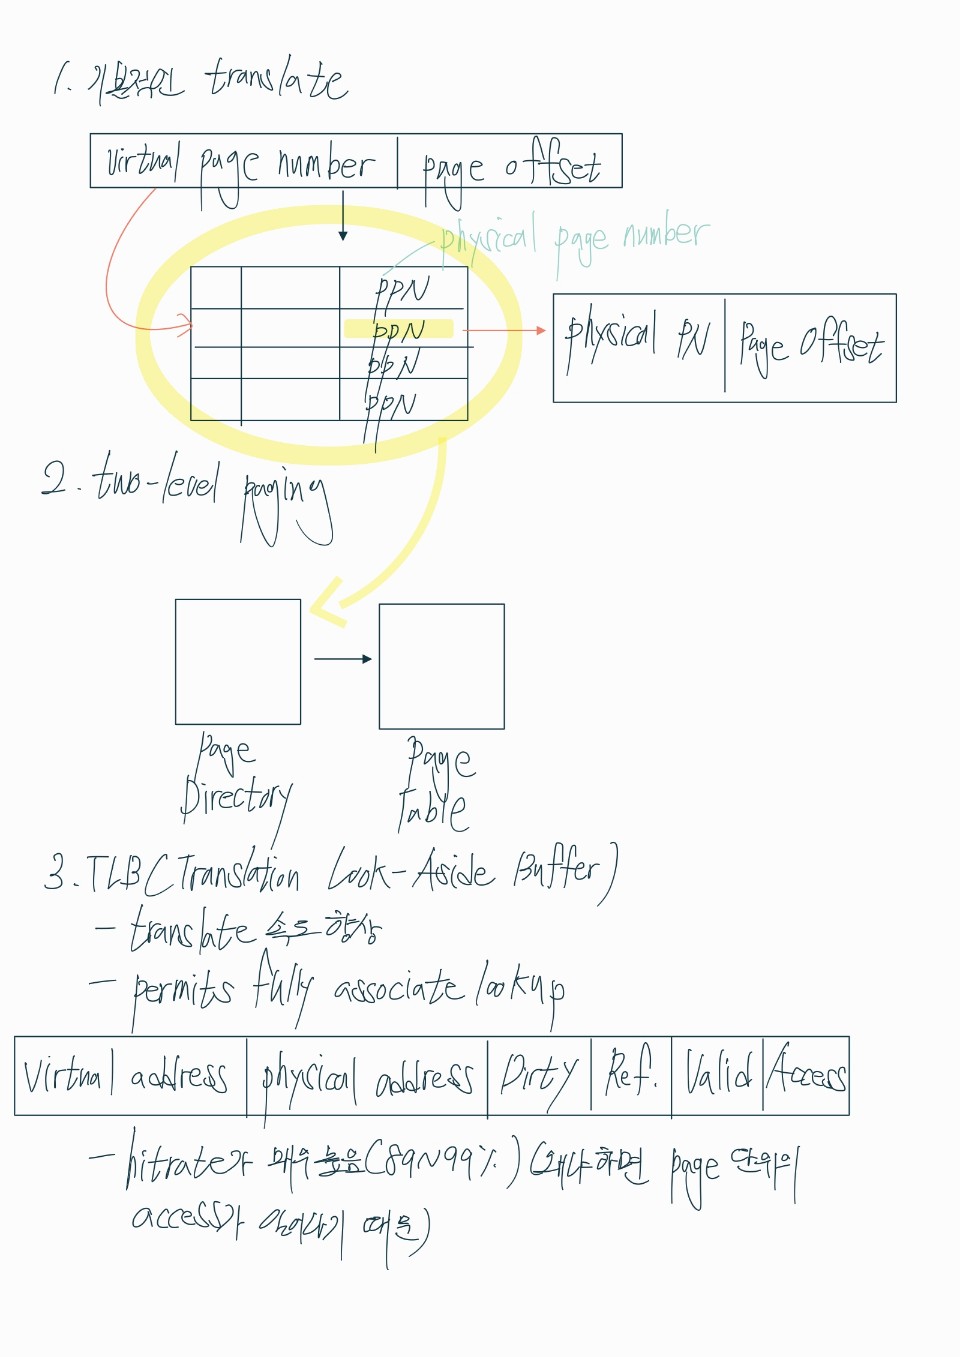 1. 기본적인 translate
virtual page number page offset
physical page number
PPN
PPN
PPN
PPN
physical PN Page Offset
2. two-level paging
Page Directory
Page Table
3. TLB (Translation Look-Aside Buffer)
- translate 속도 향상
- permits fully associate lookup
Virtual address physical address Dirty Ref. Valid Access
- hitrate가 매우 높음(89~99%) (왜냐하면 page 단위의
access가 일어나기 때문)